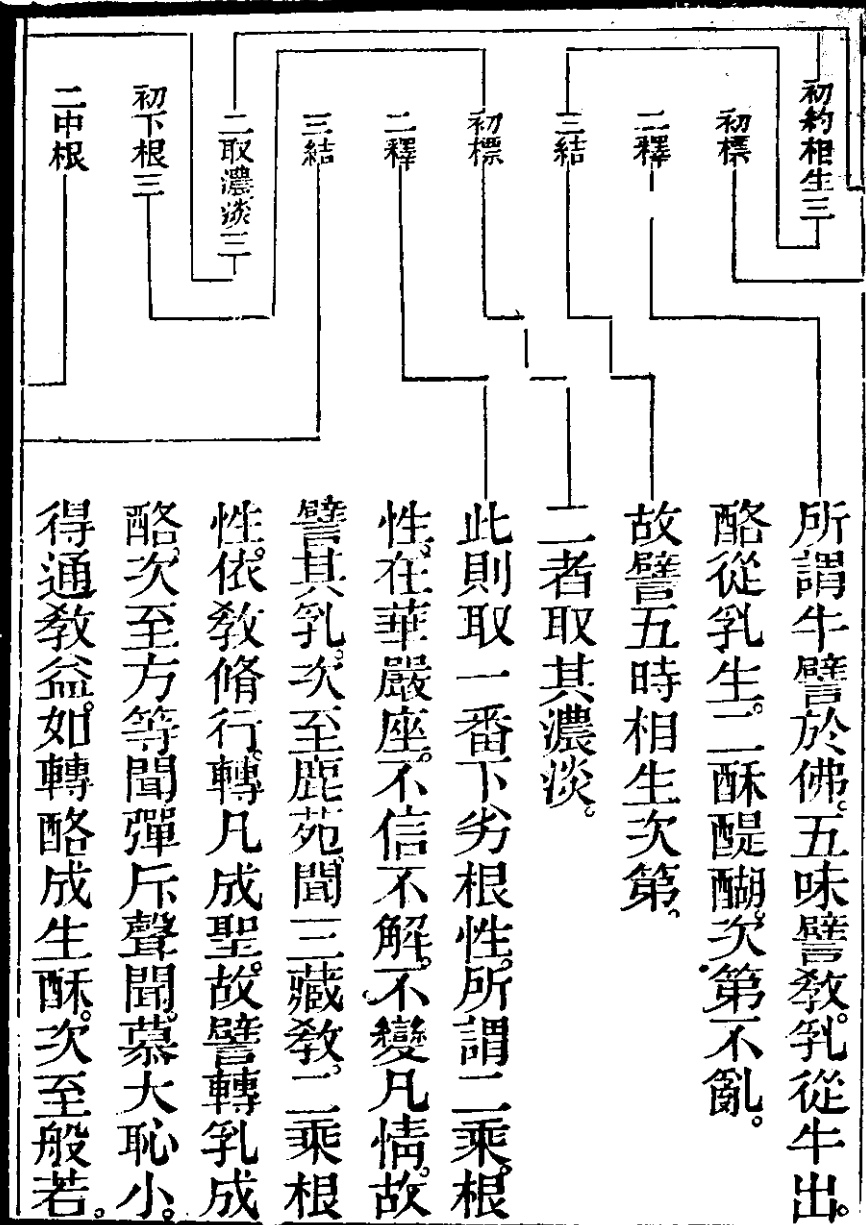 初約相生三
初標
二釋
三結
初標
二釋
三結
二取濃淡三
初下根三
二中根
所謂牛譬於佛。五味譬敎。乳從牛出。
酪從乳生。二酥醍醐。次第不亂。
故譬五時相生次第。
二者取其濃淡。
此則取一番下劣根性。所謂二乘。根
性。在華嚴座。不信不解。不變凡情。故
譬其乳。次至鹿苑。聞三藏敎。二乘根
性。依敎脩行。轉凡成聖。故譬轉乳成
酪。次至方等。聞彈斥聲聞。慕大恥小。
得通敎益。如轉酪成生酥。次至般若。